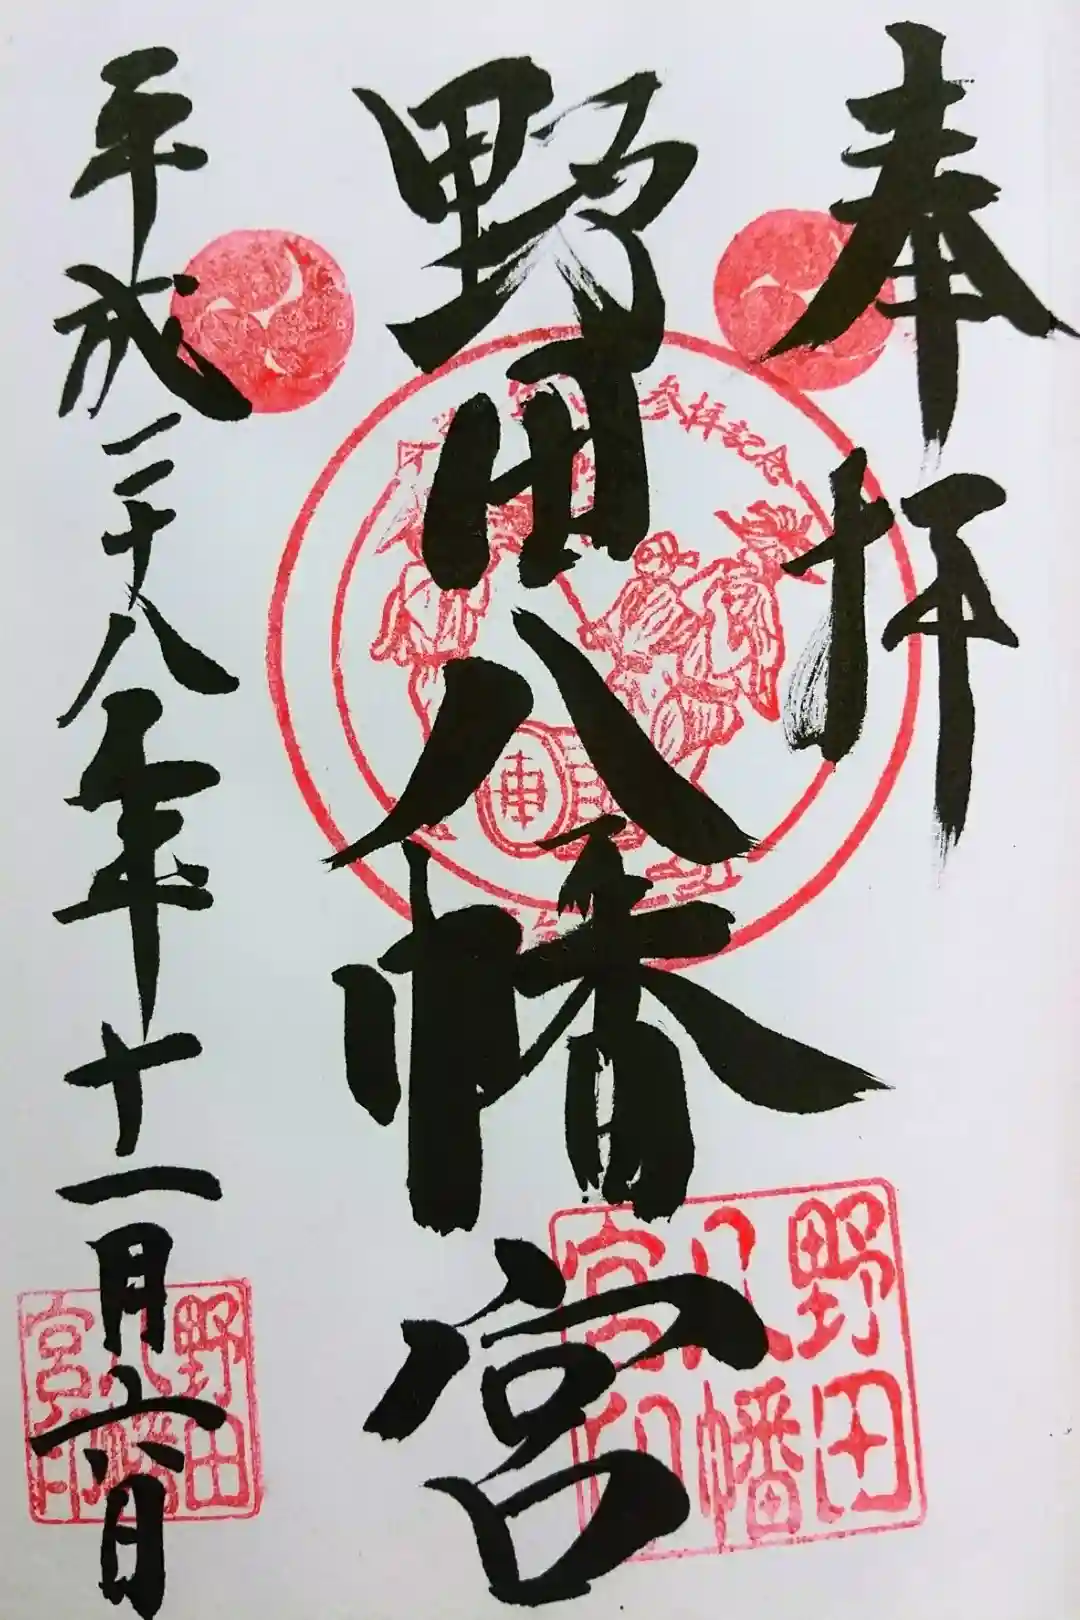 奉拝
野田八幡宮
平成二十八年十一月六日
参拝記念
野田
八幡
宮印
野田
八幡
宮印